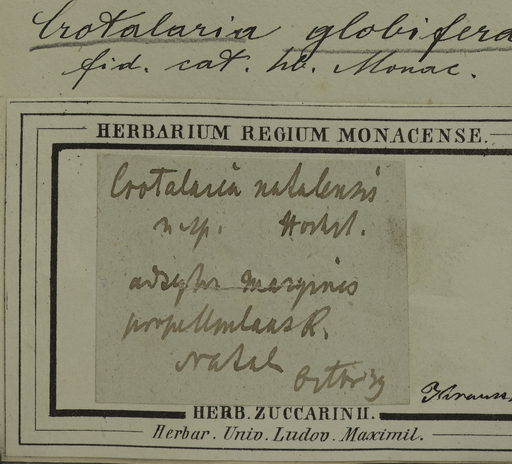 Crotalaria globifera
fid. cat. hb. Monac.
HERBARIUM REGIUM MONACENSE.
Crotalaria natalensis
n. sp. Hochst.
margines
R.
Natal
Octbr 39
Krauss.
HERB. ZUCCARINII.
Herbar. Univ. Ludov. Maximil.